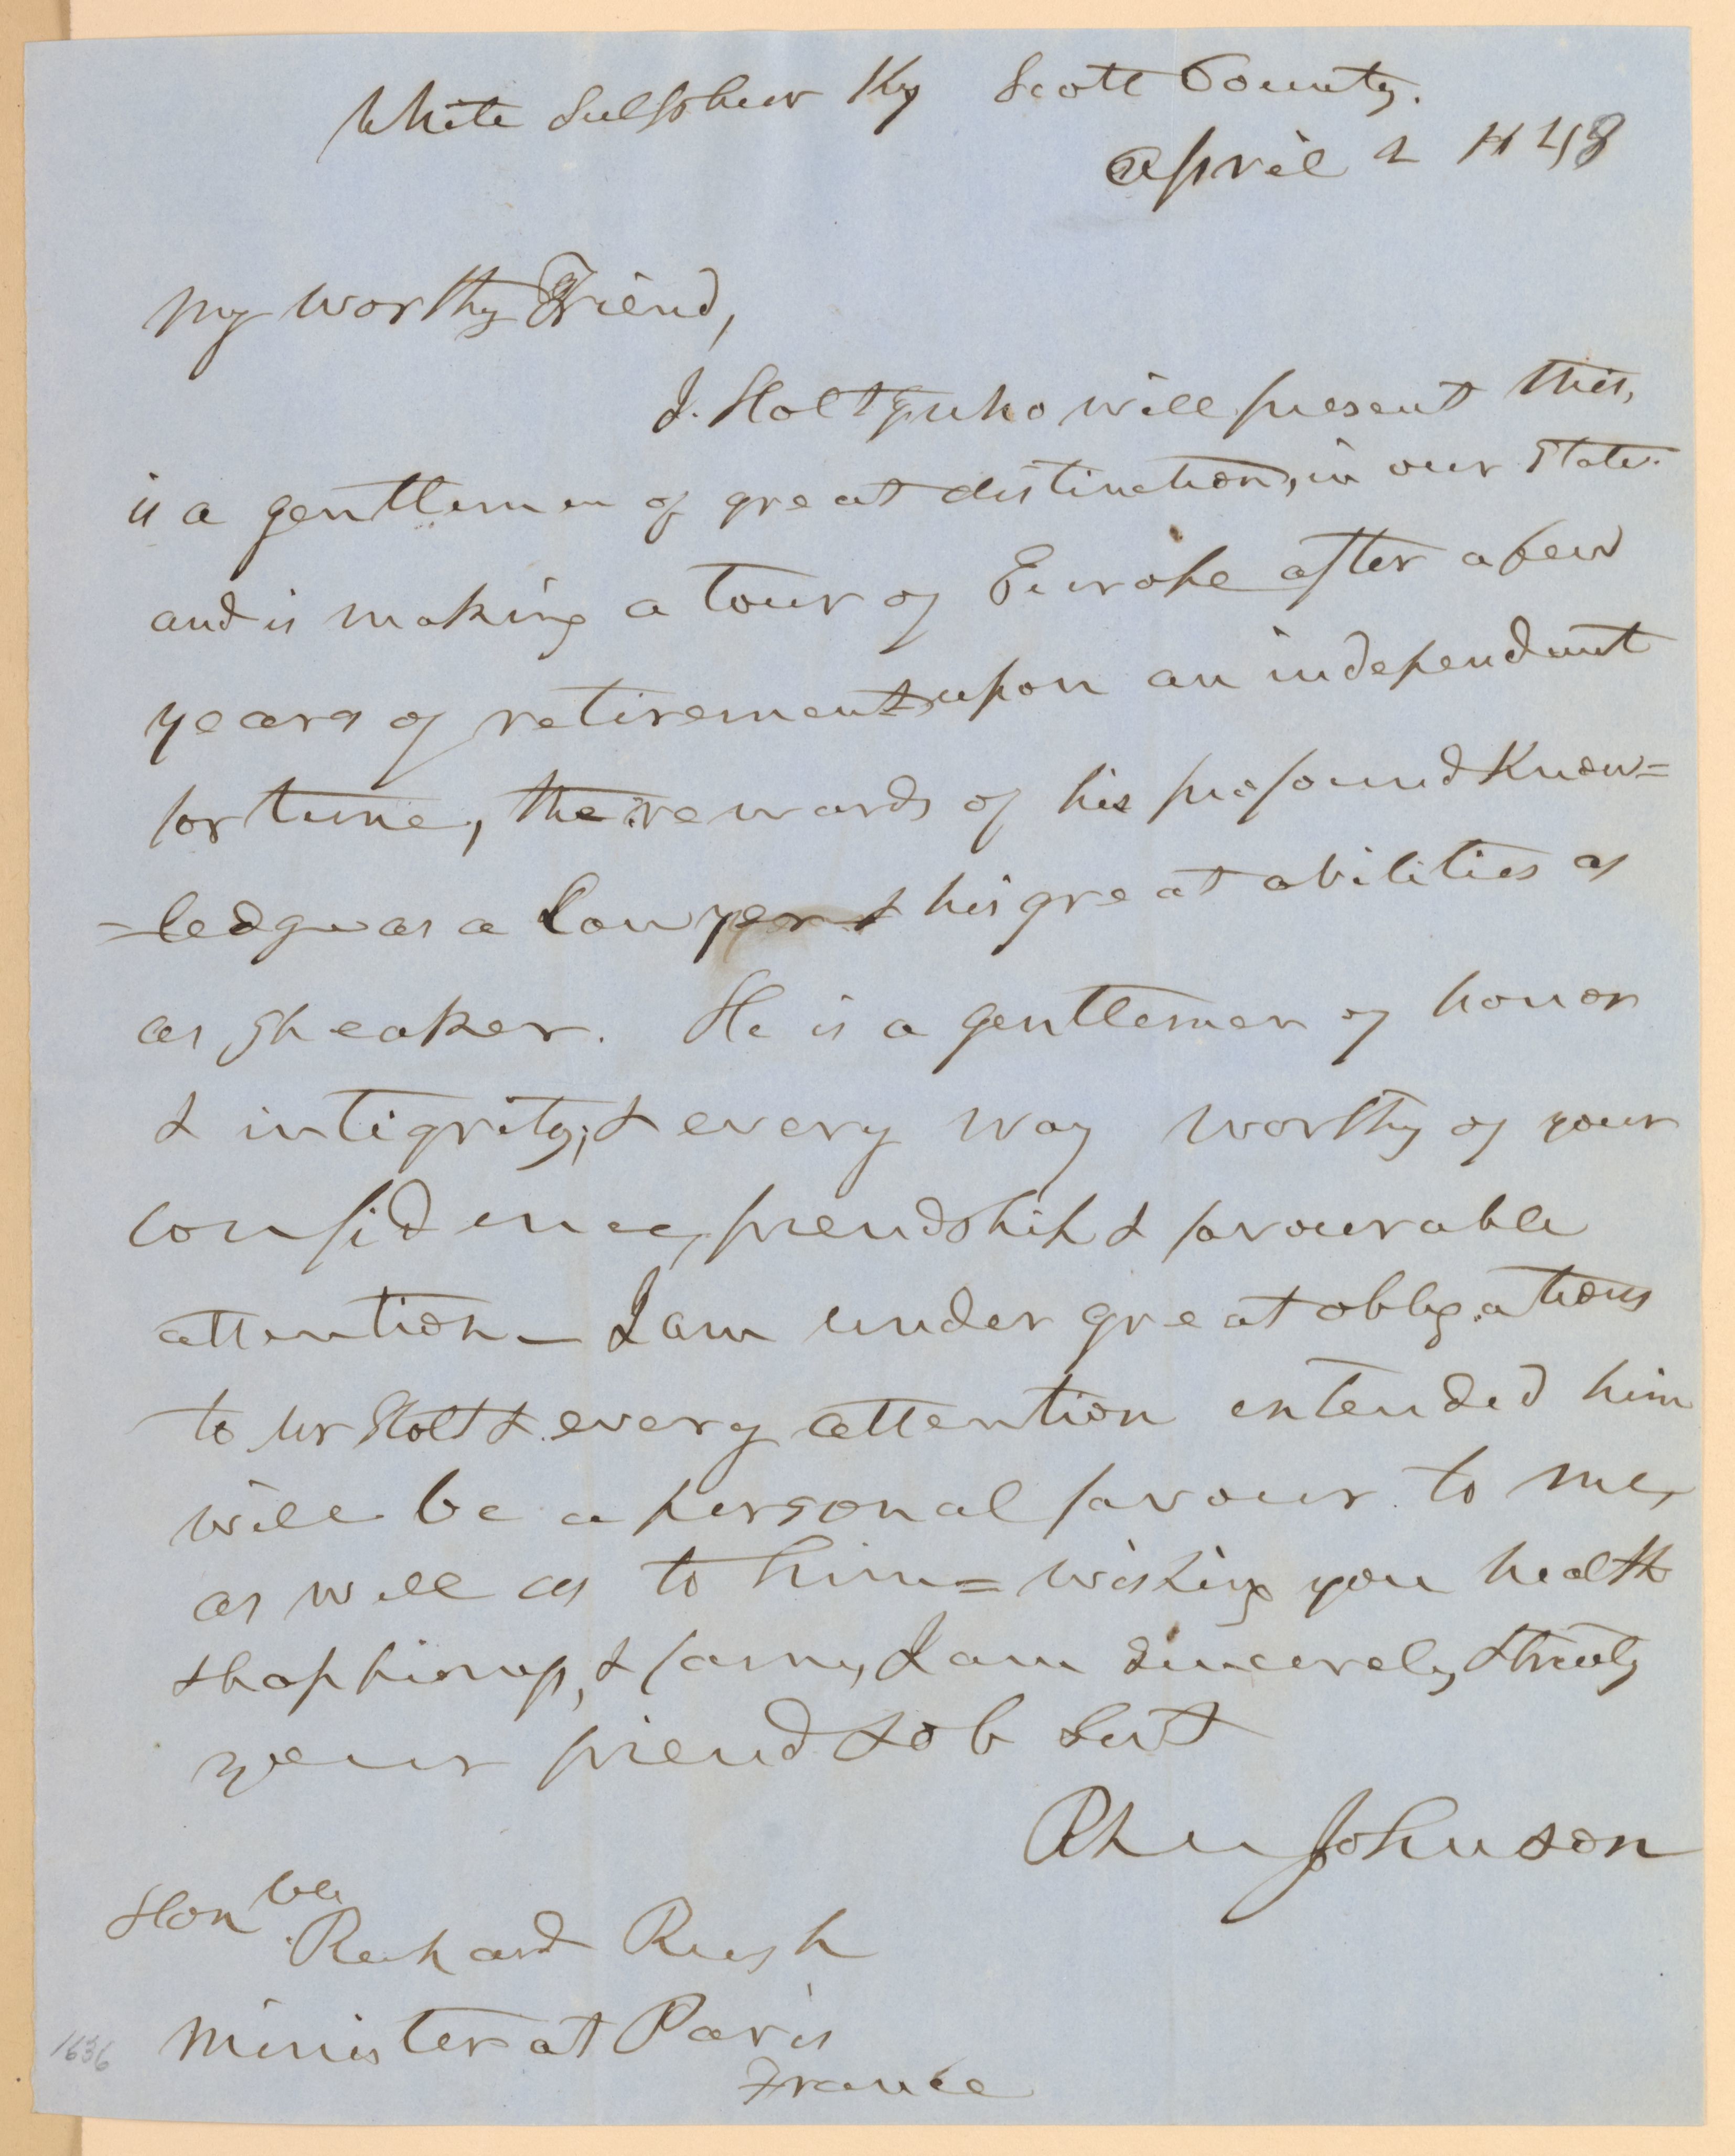 White Sulphur Ky Scott County.
April 2 1848
My worthy Friend,
J. Holt Esqr who will present this,
is a gentleman of great distinction, in our State.
and is making a tour of Europe after a few
years of retirement upon an independant
fortune, the rewards of his profound Know=
=ledge as a Lawyer & his great abilities as
as speaker. He is a gentleman of honor
& intigrity; & every way worthy of your
confidence, friendship & favourable
attention_ I am under great obligations
to Mr Holt & every attention extended him
will be a personal favour to me,
as well as to him= wishing you health
& happiness, & fame, I am sincerely & truly
your friend & ob Sevt
Rh M Johnson
Honble
Richard Rush
Minister at Paris
France
1636